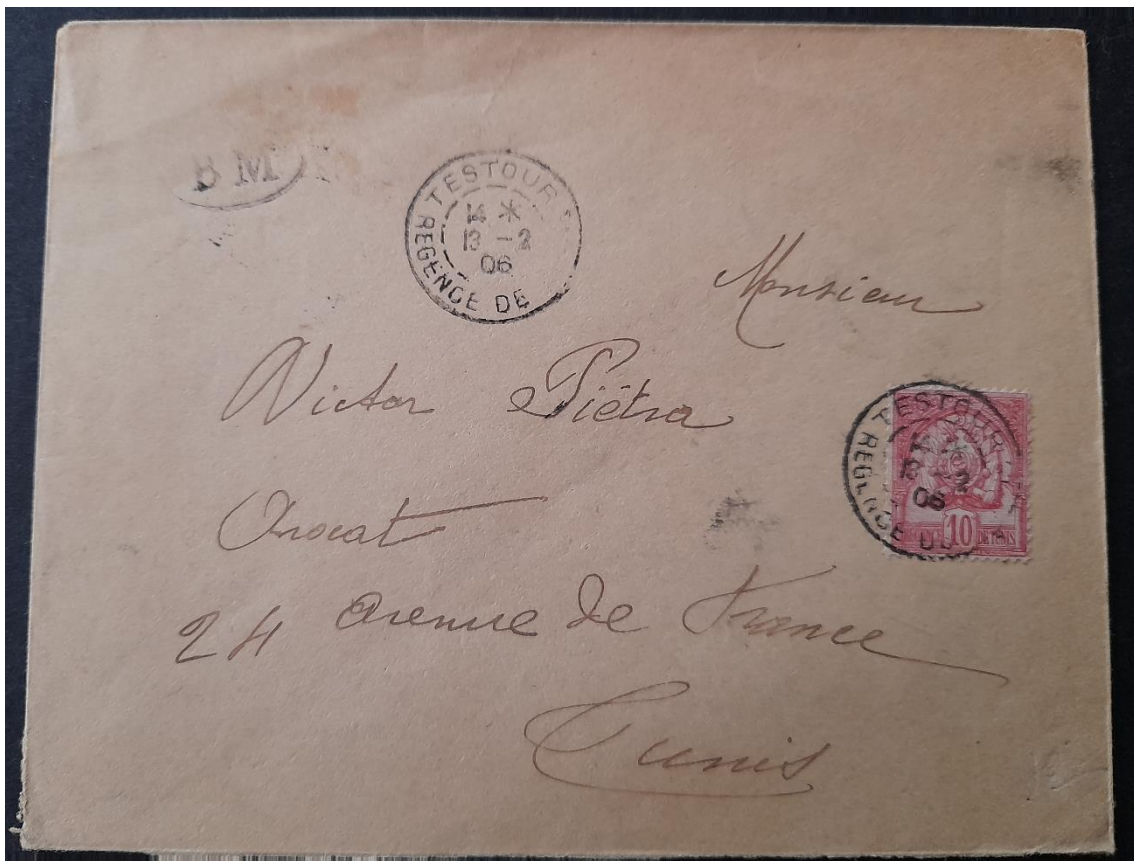 B M
TESTOUR
14 *
13 - 2
06
REGENCE DE
Monsieur
Victor Piëtra
Avocat
24 avenue de France
Tunis
TESTOUR
13 - 2
06
REGENCE DE
10
DE TUNIS